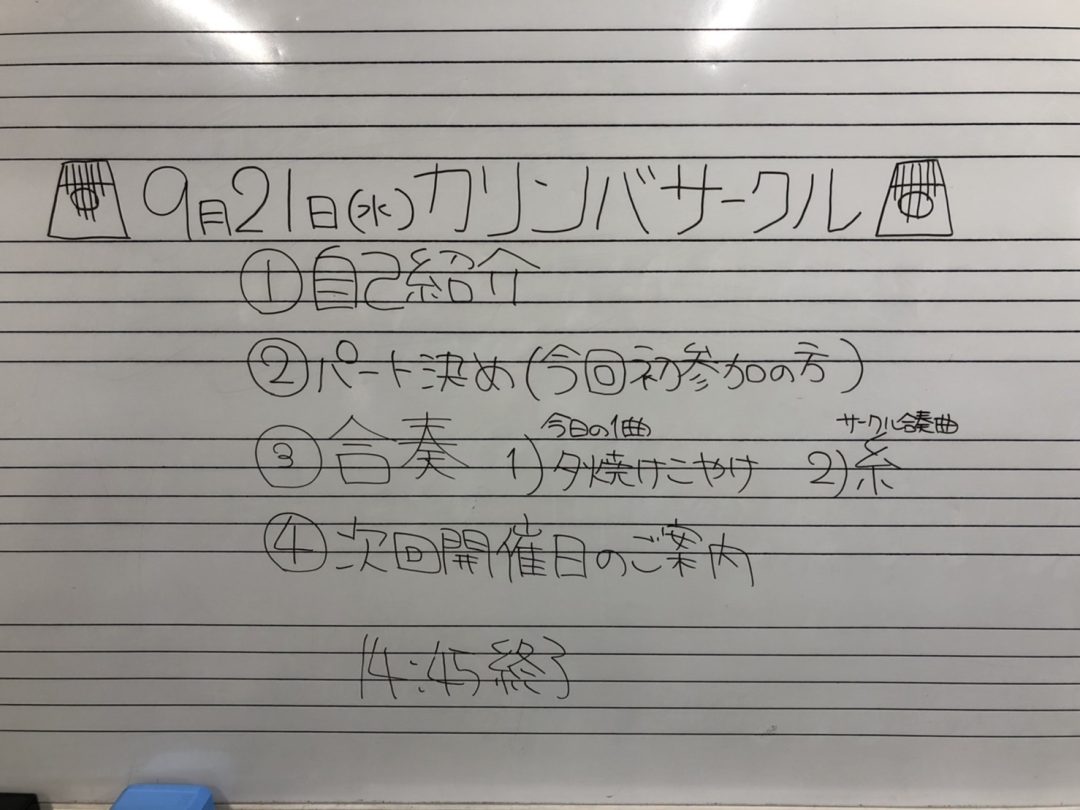 9月21日(水)カリンバサークル
①自己紹介
②パート決め(今回初参加の方)
今日の1曲 サークル合奏曲
③合奏 1)夕焼けこやけ 2)糸
④次回開催日のご案内
14:45終了